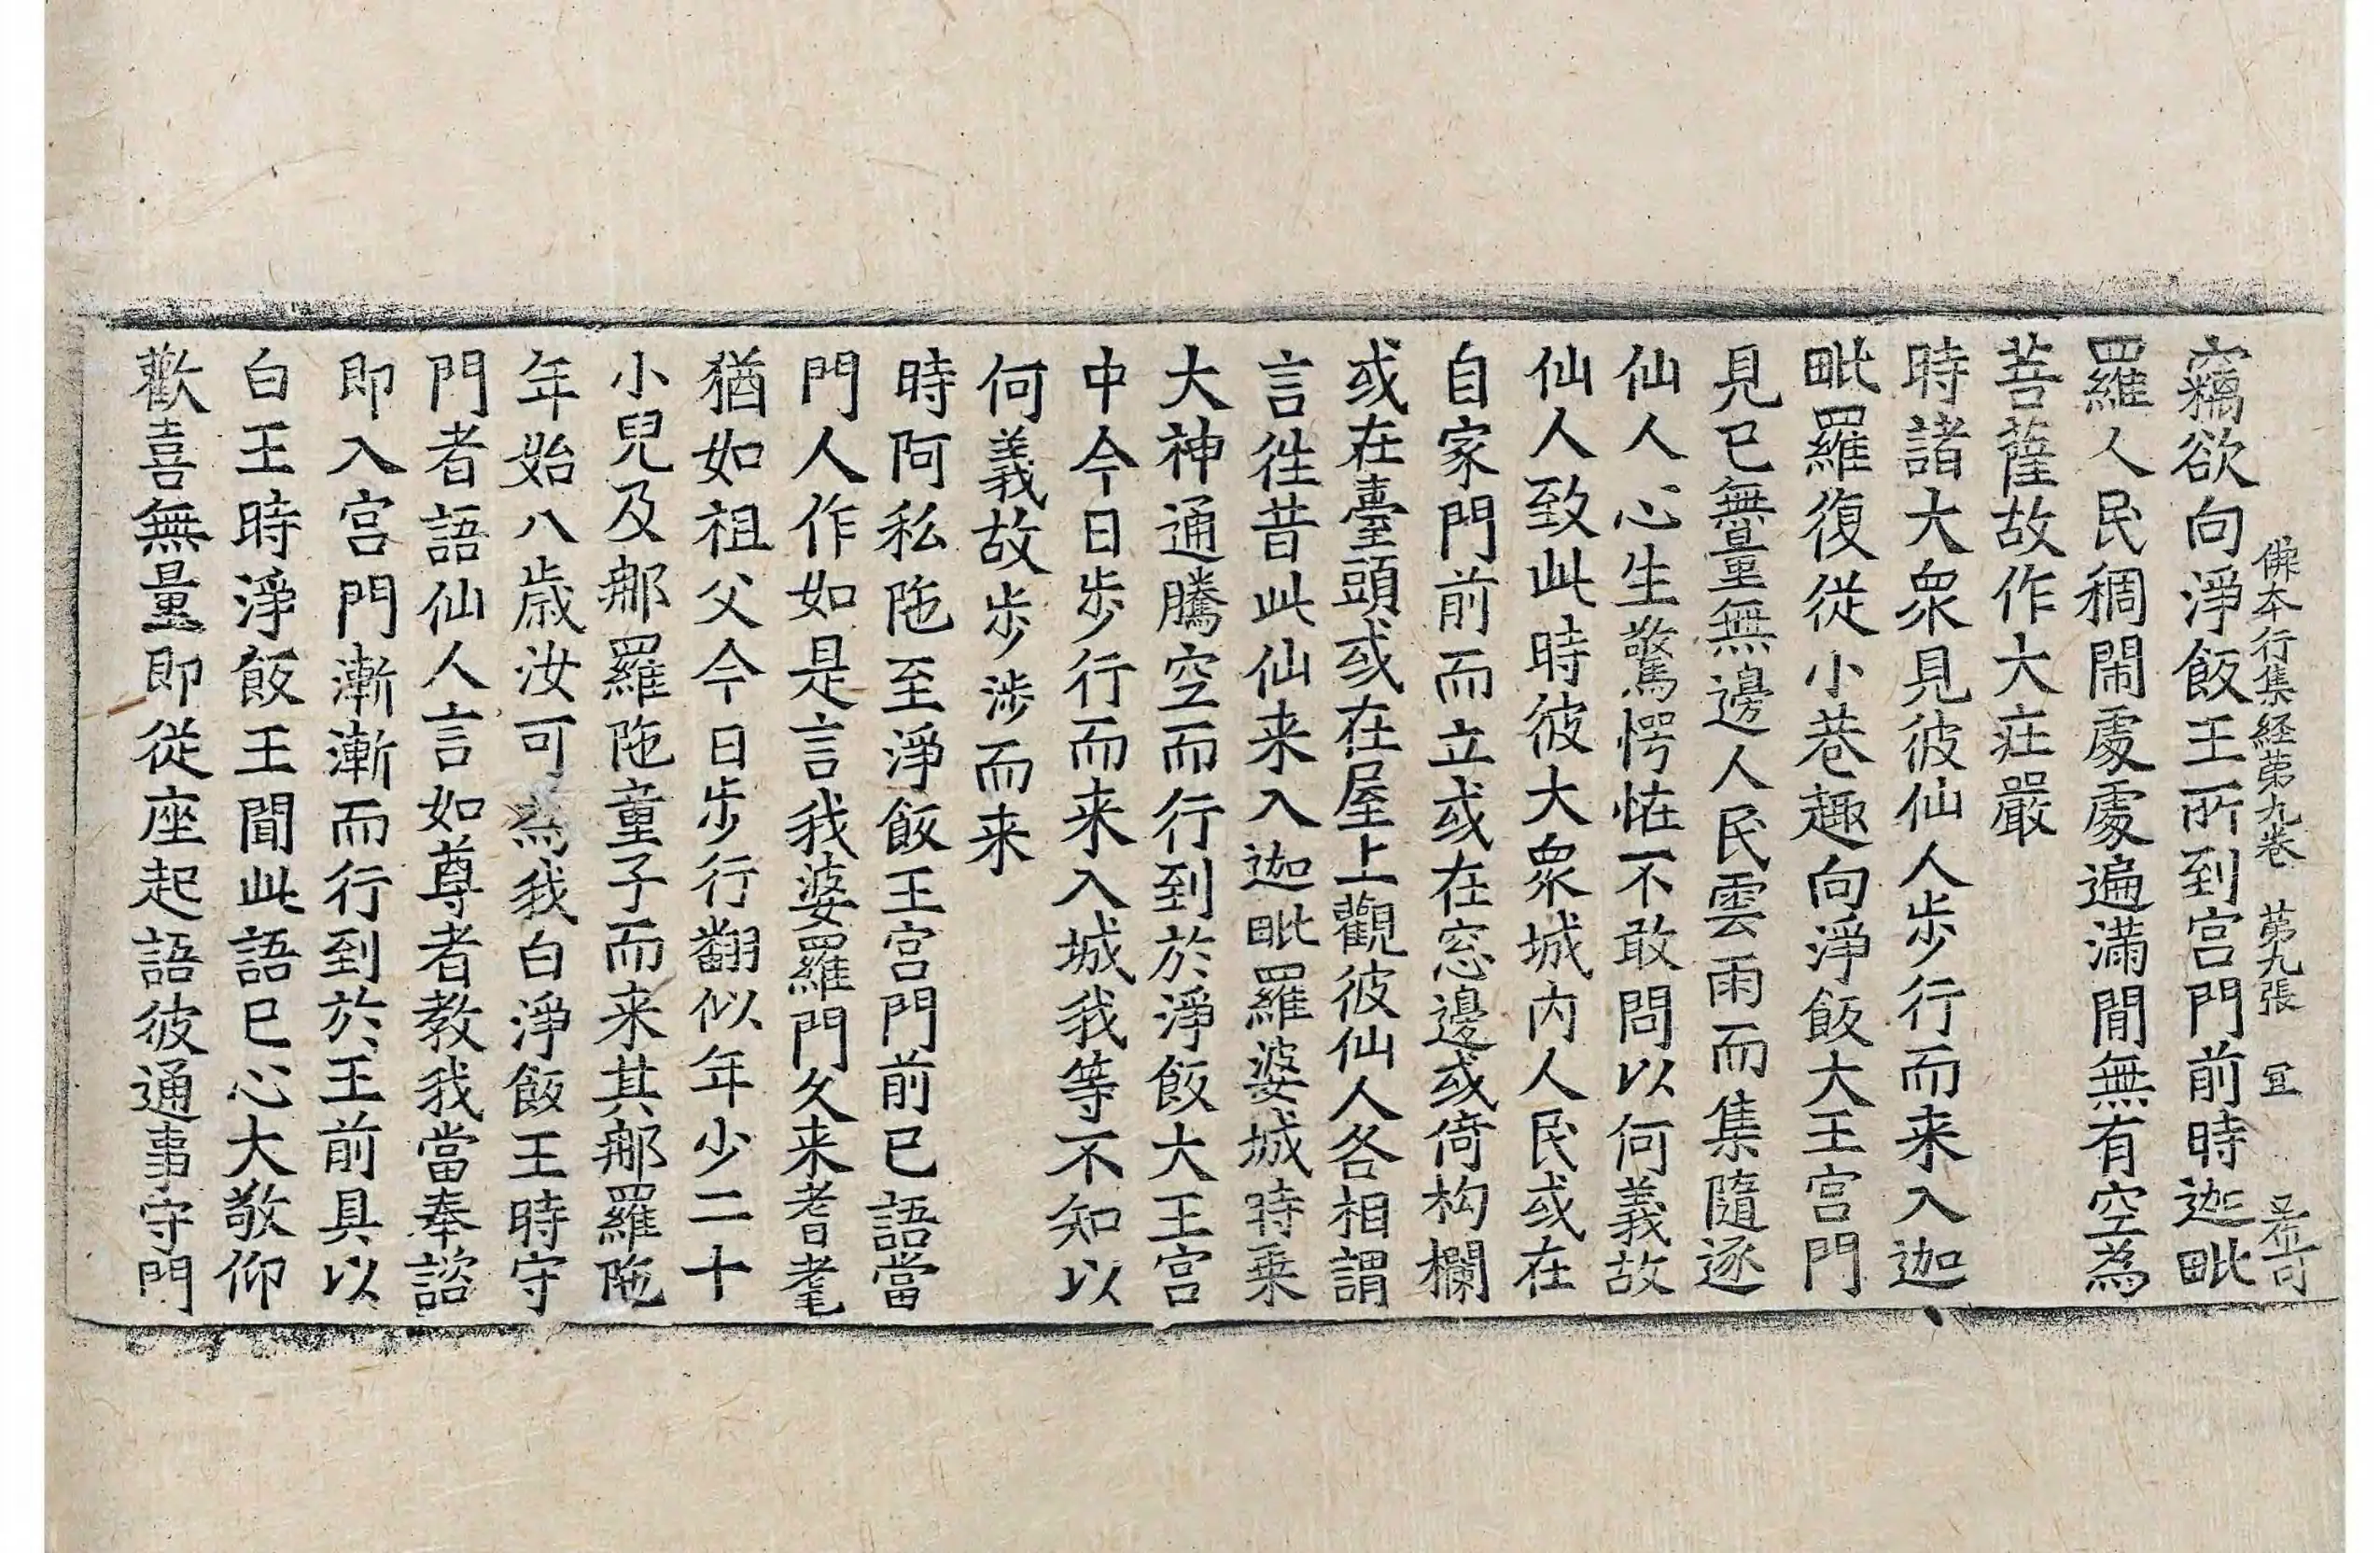 佛本行集経苐九卷 苐九張 冝
竊欲向淨飯王所到宫門前時迦毗
羅人民稠閙處處遍滿閒無有空為
菩薩故作大庄嚴
時諸大衆見彼仙人步行而来入迦
毗羅復從小巷趣向淨飯大王宫門
見已無量無邊人民雲雨而集隨逐
仙人心生驚愕恠不敢問以何義故
仙人致此時彼大衆城内人民或在
自家門前而立或在窓邊或倚构欄
或在臺頭或在屋上觀彼仙人各相謂
言徃昔此仙来入迦毗羅婆城時乗
大神通騰空而行到於淨飯大王宫
中今日步行而来入城我等不知以
何義故步涉而来
時阿私陁至淨飯王宫門前已語當
門人作如是言我婆羅門久来耆耄
猶如祖父今日步行翻似年少二十
小兒及那羅陁童子而来其那羅陁
年始八歳汝可為我白淨飯王時守
門者語仙人言如尊者教我當奉諮
即入宫門漸漸而行到於王前具以
白王時淨飯王聞此語已心大敬仰
歡喜無量即從座起語彼通事守門